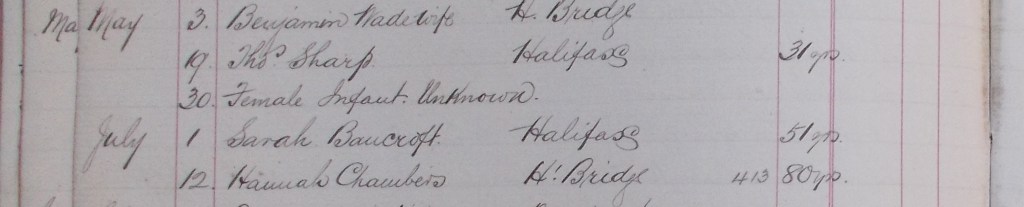 Ma May 3. Benjamin Wade wife H. Bridge
19. Thos. Sharp Halifax 31 yrs.
30. Female Infant. Unknown.
July 1 Sarah Bancroft. Halifax 51 yrs.
12. Hannah Chambers Hn. Bridge 413 80 yrs.